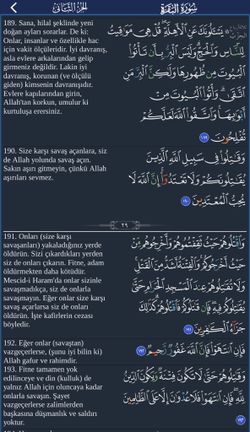 الجزء الثاني
سورة البقرة
189. Sana, hilal şeklinde yeni
doğan ayları sorarlar. De ki:
Onlar, insanlar ve özellikle hac
için vakit ölçüleridir. İyi davranış,
asla evlere arkalarından gelip
girmeniz değildir. Lakin iyi
davranış, korunan (ve ölçülü
giden) kimsenin davranışıdır.
Evlere kapılarından girin,
Allah'tan korkun, umulur ki
kurtuluşa erersiniz.
يَسْـَٔلُونَكَ عَنِ ٱلْأَهِلَّةِ قُلْ هِىَ مَوَٰقِيتُ
لِلنَّاسِ وَٱلْحَجِّ وَلَيْسَ ٱلْبِرُّ بِأَن تَأْتُوا۟
ٱلْبُيُوتَ مِن ظُهُورِهَا وَلَٰكِنَّ ٱلْبِرَّ مَنِ
ٱتَّقَىٰ وَأْتُوا۟ ٱلْبُيُوتَ مِنْ
أَبْوَٰبِهَا وَٱتَّقُوا۟ ٱللَّهَ لَعَلَّكُمْ
تُفْلِحُونَ ١٨٩
190. Size karşı savaş açanlara, siz
de Allah yolunda savaş açın.
Sakın aşırı gitmeyin, çünkü Allah
aşırıları sevmez.
وَقَٰتِلُوا۟ فِى سَبِيلِ ٱللَّهِ ٱلَّذِينَ
يُقَٰتِلُونَكُمْ وَلَا تَعْتَدُوٓا۟ إِنَّ ٱللَّهَ لَا
يُحِبُّ ٱلْمُعْتَدِينَ ١٩٠
٢٩
191. Onları (size karşı
savaşanları) yakaladığınız yerde
öldürün. Sizi çıkardıkları yerden
siz de onları çıkarın. Fitne, adam
öldürmekten daha kötüdür.
Mescid-i Haram'da onlar sizinle
savaşmadıkça, siz de onlarla
savaşmayın. Eğer onlar size karşı
savaş açarlarsa siz de onları
öldürün. İşte kafirlerin cezası
böyledir.
وَٱقْتُلُوهُمْ حَيْثُ ثَقِفْتُمُوهُمْ وَأَخْرِجُوهُم مِّنْ
حَيْثُ أَخْرَجُوكُمْ وَٱلْفِتْنَةُ أَشَدُّ مِنَ ٱلْقَتْلِ
وَلَا تُقَٰتِلُوهُمْ عِندَ ٱلْمَسْجِدِ ٱلْحَرَامِ حَتَّىٰ
يُقَٰتِلُوكُمْ فِيهِ فَإِن قَٰتَلُوكُمْ فَٱقْتُلُوهُمْ كَذَٰلِكَ
جَزَآءُ ٱلْكَٰفِرِينَ ١٩١
192. Eğer onlar (savaştan)
vazgeçerlerse, (şunu iyi bilin ki)
Allah gafur ve rahimdir.
فَإِنِ ٱنتَهَوْا۟ فَإِنَّ ٱللَّهَ غَفُورٌ رَّحِيمٌ ١٩٢
193. Fitne tamamen yok
edilinceye ve din (kulluk) de
yalnız Allah için oluncaya kadar
onlarla savaşın. Şayet
vazgeçerlerse zalimlerden
başkasına düşmanlık ve saldırı
yoktur.
وَقَٰتِلُوهُمْ حَتَّىٰ لَا تَكُونَ فِتْنَةٌ وَيَكُونَ ٱلدِّينُ
لِلَّهِ فَإِنِ ٱنتَهَوْا۟ فَلَا عُدْوَٰنَ إِلَّا عَلَى ٱلظَّٰلِمِينَ
١٩٣